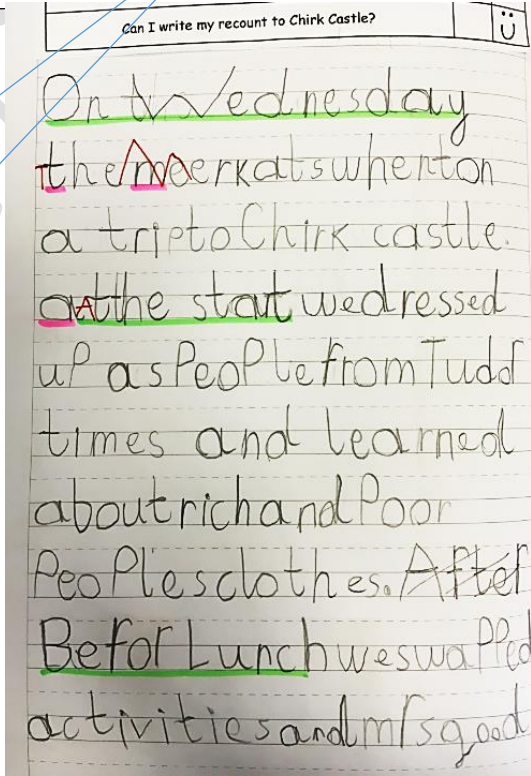 Can I write my recount to Chirk Castle?
On Wednesday
the Meerkats whent on
a trip to Chirk castle.
at the start we dressed
up as People from Tudor
times and learned
about rich and Poor
PeoPle's clothes. After
Befor Lunch we swapped
activities and mrs good